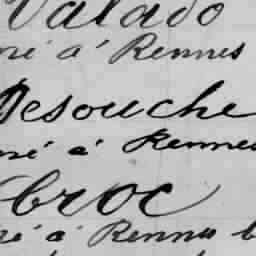 Valado
né à Rennes
Desouche
né à Rennes
broc
né à Rennes